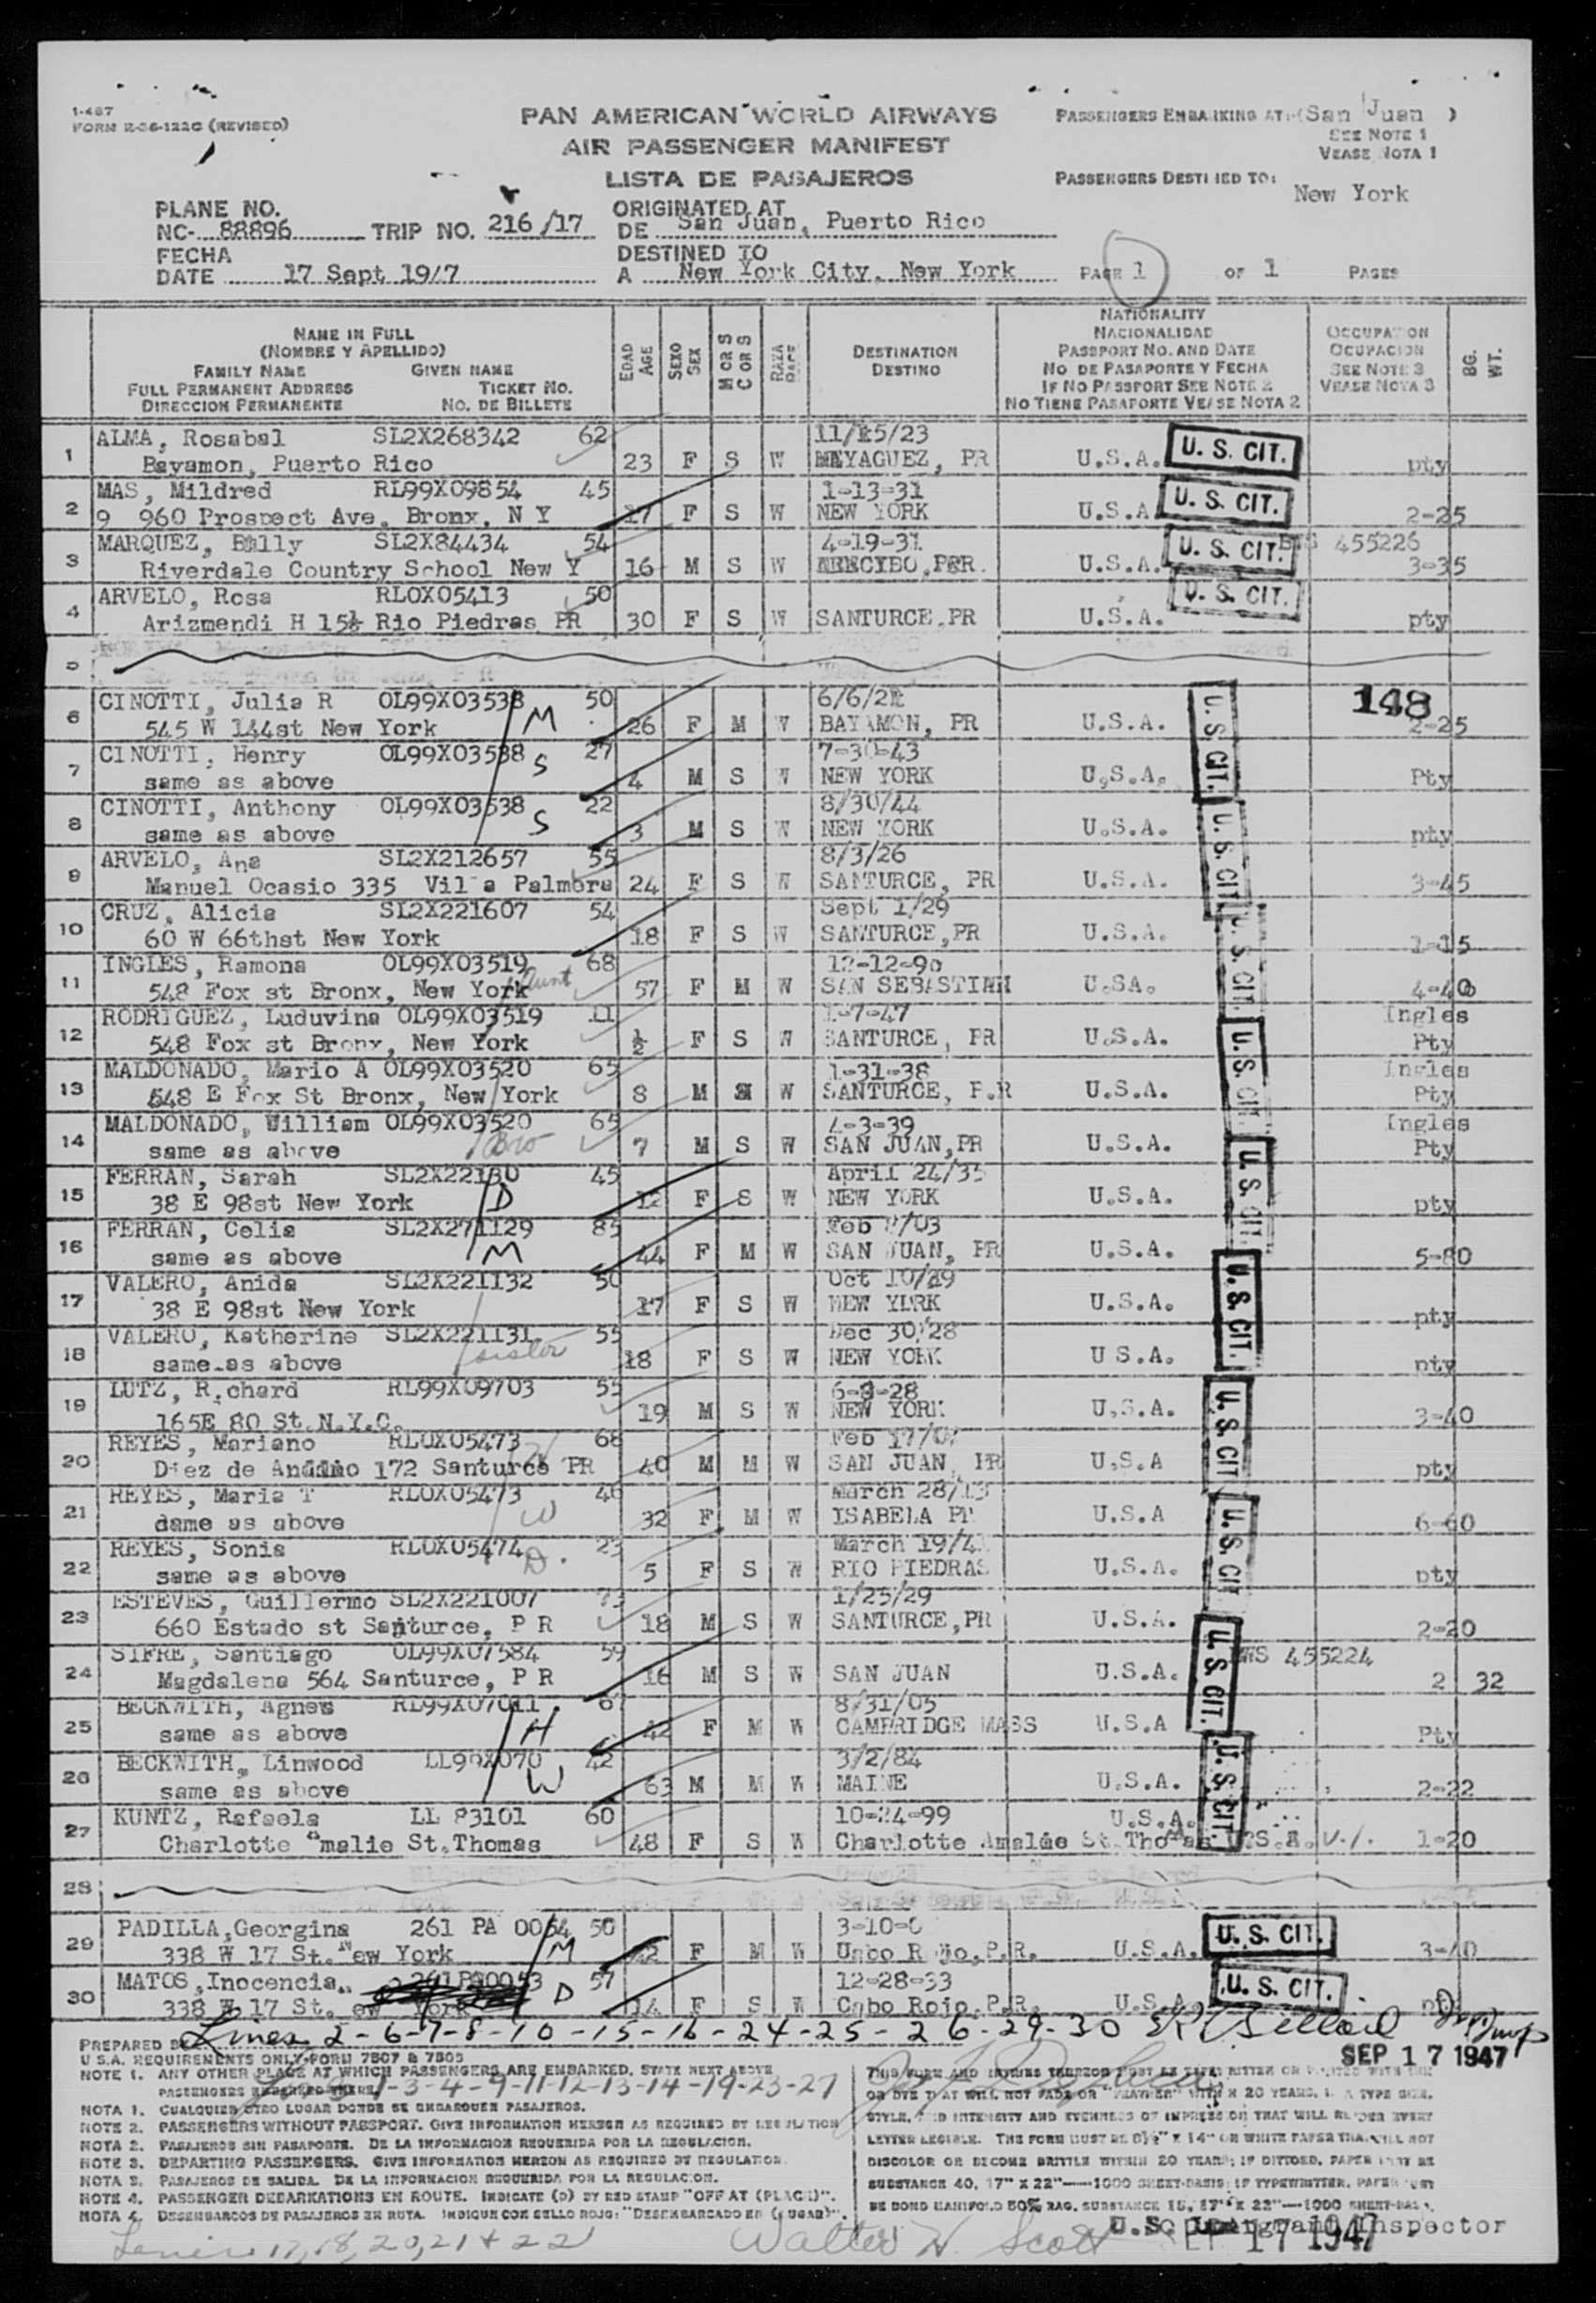 1-467
FORM R-36-122C (REVISED)
PAN AMERICAN WORLD AIRWAYS
AIR PASSENGER MANIFEST
LISTA DE PASAJEROS
PASSENGERS EMBARKING AT: (San Juan )
SEE NOTE 1
VEASE NOTA 1
PASSENGERS DESTINED TO:
New York
PLANE NO.
NC- 88896 TRIP NO. 216/17
ORIGINATED AT
DE San Juan, Puerto Rico
FECHA
DATE 17 Sept 1947
DESTINED TO
A New York City, New York
PAGE 1 OF 1 PAGES
NAME IN FULL
(NOMBRE Y APELLIDO)
FAMILY NAME GIVEN NAME
FULL PERMANENT ADDRESS TICKET NO.
DIRECCION PERMANENTE NO. DE BILLETE
EDAD AGE
SEXO SEX
M OR S C OR S
RAZA RACE
DESTINATION
DESTINO
NATIONALITY
NACIONALIDAD
PASSPORT NO. AND DATE
NO DE PASAPORTE Y FECHA
IF NO PASSPORT SEE NOTE 2
NO TIENE PASAPORTE VEASE NOTA 2
OCCUPATION
OCUPACION
SEE NOTE 3
VEASE NOTA 3
BG. WT.
1 ALMA, Rosabal SL2X268342 62 11/15/23
Bayamon, Puerto Rico 23 F S W MAYAGUEZ, PR U.S.A. U. S. CIT. pty
2 MAS, Mildred RL99X09854 45 1-13-31
9 960 Prospect Ave. Bronx, N Y 17 F S W NEW YORK U.S.A U. S. CIT. 2-25
3 MARQUEZ, Billy SL2X84434 54 4-19-31 455226
Riverdale Country School New Y 16 M S W U.S.A. U. S. CIT. 3-35
4 ARVELO, Rosa RLOX05413 50
Arizmendi H 15½ Rio Piedras PR 30 F S W SANTURCE,PR U.S.A. U. S. CIT. pty
5
6 CINOTTI, Julia R OL99X03538 50 M 148
545 W 144st New York 26 F M W BAYAMON, PR U.S.A. U. S. CIT. 2-25
7 CINOTTI, Henry OL99X03538 S 27 7-30-43
same as above 4 M S W NEW YORK U.S.A. Pty
8 CINOTTI, Anthony OL99X03538 S 22 8/30/44
same as above 3 M S W NEW YORK U.S.A. U. S. CIT. pty
9 ARVELO, Ana SL2X212657 55 8/3/26
Manuel Ocasio 335 Vil a Palmera 24 F S W SANTURCE, PR U.S.A. 3-45
10 CRUZ, Alicia SL2X221607 54 Sept 1/29
60 W 66thst New York 18 F S W SANTURCE,PR U.S.A. U. S. CIT. 1-15
11 INGLES, Ramona OL99X03519 68 12-12-90
548 Fox st Bronx, New York Aunt 57 F M W SAN SEBASTIAN U.SA. 4-40
12 RODRIGUEZ, Luduvina OL99X03519 11 1-7-47 Ingles
548 Fox st Bronx, New York ½ F S W SANTURCE, PR U.S.A. U.S. CIT. Pty
13 MALDONADO, Mario A OL99X03520 65 1-31-38 Ingles
548 E Fox St Bronx, New York 8 M S W SANTURCE, P.R U.S.A. Pty
14 MALDONADO, William OL99X03520 65 4-3-39 Ingles
same as above Bro 7 M S W SAN JUAN,PR U.S.A. U.S. CIT. Pty
15 FERRAN, Sarah SL2X22130 45 April 24/35
38 E 98st New York D 12 F S W NEW YORK U.S.A. pty
16 FERRAN, Celia SL2X271129 85
same as above M 44 F M W SAN JUAN, PR U.S.A. U.S. CIT. 5-80
17 VALERO, Anida SL2X221132 50 Oct 10/29
38 E 98st New York 17 F S W NEW YORK U.S.A. pty
18 VALERO, Katherine SL2X221131 55 Dec 30/28
same as above sister 18 F S W NEW YORK U S.A. pty
19 LUTZ, R.chard RL99X09703 55 6-8-28
165E 80 St.N.Y.C. 19 M S W NEW YORK U.S.A. U.S. CIT. 3-40
20 REYES, Mariano RLOX05473 68
Diez de 172 Santurce PR 40 M M W SAN JUAN, PR U.S.A pty
21 REYES, Maria T RLOX05473 46 March 28/
dame as above W 32 F M W ISABELA PR U.S.A U.S. CIT 6-60
22 REYES, Sonia RLOX05474 D. 23 March 19/4
same as above 5 F S W RIO PIEDRAS U.S.A. pty
23 ESTEVES, Guillermo SL2X221007 1/25/29
660 Estado st Santurce, P R 18 M S W SANTURCE,PR U.S.A. 2-20
24 SIFRE, Santiago OL99X07584 59 455224
Magdalena 564 Santurce, P R 16 M S W SAN JUAN U.S.A. U.S. CIT. 2 32
25 BECKWITH, Agnes RL99X07011 8/31/05
same as above H 42 F M W CAMBRIDGE MASS U.S.A Pty
26 BECKWITH, Linwood LL99X070 42 3/2/84
same as above W 63 M M W MAINE U.S.A. U. S. CIT. 2-22
27 KUNTZ, Rafaela LL 83101 60 10-24-99 U.S.A.
Charlotte malie St.Thomas 48 F S W Charlotte Amalie St.Thomas V.I. 1-20
28
29 PADILLA,Georgina 261 PA 0054 50 3-10-0
338 W 17 St. ew York M 42 F M W Cabo Rojo,P.R. U.S.A. U. S. CIT. 3-40
30 MATOS,Inocencia 57 12-28-33
338 W 17 St. ew York D 14 F S W Cabo Rojo,P.R. U.S.A U. S. CIT.
PREPARED BY Lines 2-6-7-8-10-15-16-24-25-26-29-30
SEP 17 1947
U S.A. REQUIREMENTS ONLY-FORM 7507 & 7505
NOTE 1. ANY OTHER PLACE AT WHICH PASSENGERS ARE EMBARKED. STATE NEXT ABOVE
PASSENGERS EMBARKED THERE. 1-3-4-9-11-12-13-14-19-23-27
NOTA 1. CUALQUIER OTRO LUGAR DONDE SE EMBARQUEN PASAJEROS.
NOTE 2. PASSENGERS WITHOUT PASSPORT. GIVE INFORMATION HEREON AS REQUIRED BY REGULATION
NOTA 2. PASAJEROS SIN PASAPORTE. DE LA INFORMACION REQUERIDA POR LA REGULACION.
NOTE 3. DEPARTING PASSENGERS. GIVE INFORMATION HEREON AS REQUIRED BY REGULATION.
NOTA 3. PASAJEROS DE SALIDA. DE LA INFORMACION REQUERIDA POR LA REGULACION.
NOTE 4. PASSENGER DEBARKATIONS EN ROUTE. INDICATE (D) BY RED STAMP "OFF AT (PLACE)".
NOTA 4. DESEMBARCOS DE PASAJEROS EN RUTA. INDIQUE CON SELLO ROJO: "DESEMBARCADO EN (LUGAR)".
THIS FORM AND COPIES THEREOF MUST BE TYPEWRITTEN OR PRINTED WITH INK
OR DYE THAT WILL NOT FADE OR "FEATHER" WITHIN 20 YEARS. IN A TYPE SIZE,
STYLE, AND INTENSITY AND EVENNESS OF IMPRESSION THAT WILL RENDER EVERY
LETTER LEGIBLE. THE FORM MUST BE 8½" X 14" OR WHITE PAPER THAT WILL NOT
DISCOLOR OR BECOME BRITTLE WITHIN 20 YEARS; IF DITTOED, PAPER MUST BE
SUBSTANCE 40, 17" X 22"—1000 SHEET-BASIS; IF TYPEWRITTEN, PAPER MUST
BE BOND MANIFOLD 50% RAG, SUBSTANCE 16, 17" X 22"—1000 SHEET-BASIS.
U.S. Immigrant Inspector
17 1947
Lines 17,18,20,21 + 22 Walter W. Scott